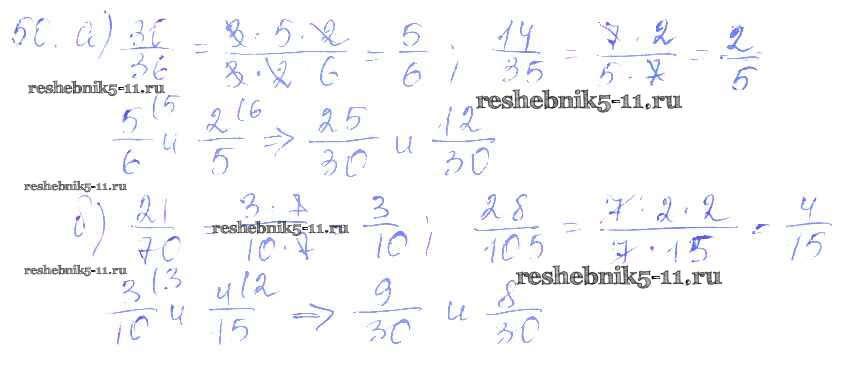 а) 30/36 = 3·5·2/3·2 6 = 5/6 ; 14/35 = 7·2/5·7 = 2/5
reshebnik5-11.ru
reshebnik5-11.ru
5/6 (5 и 2/5 (6 => 25/30 и 12/30
reshebnik5-11.ru
б) 21/70 3·7/10·7 3/10 ; 28/105 = 7·2·2/7·15 = 4/15
reshebnik5-11.ru
reshebnik5-11.ru
reshebnik5-11.ru
3/10 (3 и 4/15 (2 => 9/30 и 8/30